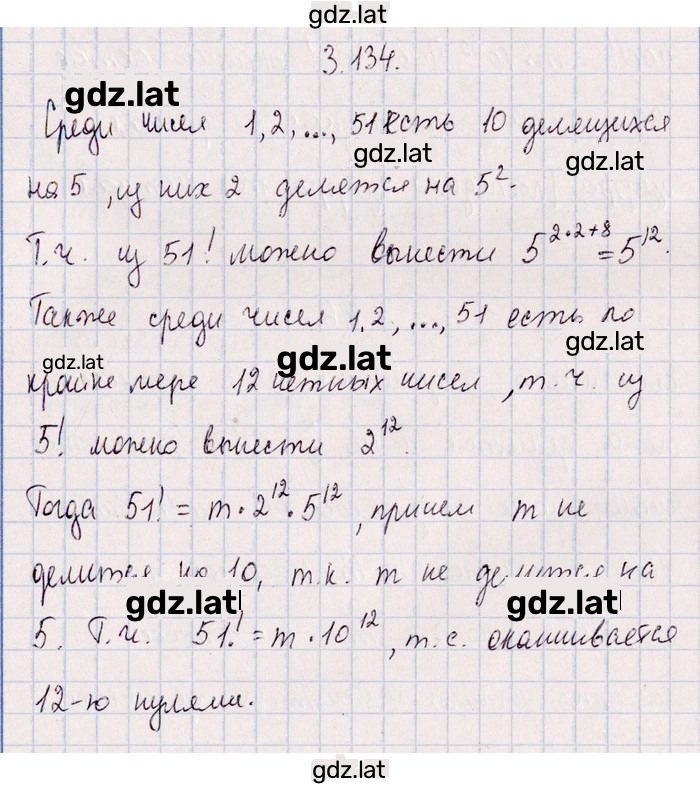 gdz.lat
3.134.
gdz.lat
Среди чисел 1, 2, ..., 51 есть 10 делящихся
gdz.lat
gdz.lat
на 5, из них 2 делятся на 5².
Т.ч. из 51! можно вынести 5^{2·2+8} = 5^{12}.
Также среди чисел 1, 2, ..., 51 есть по
gdz.lat
gdz.lat
gdz.lat
крайне мере 12 четных чисел, т.ч. из
5! можно вынести 2^{12}.
Тогда 51! = m·2^{12}·5^{12}, причем m не
делится на 10, т.к. m не делится на
gdz.lat
gdz.lat
5. Т.ч. 51! = m·10^{12}, т.е. оканчивается
12-ю нулями.
gdz.lat